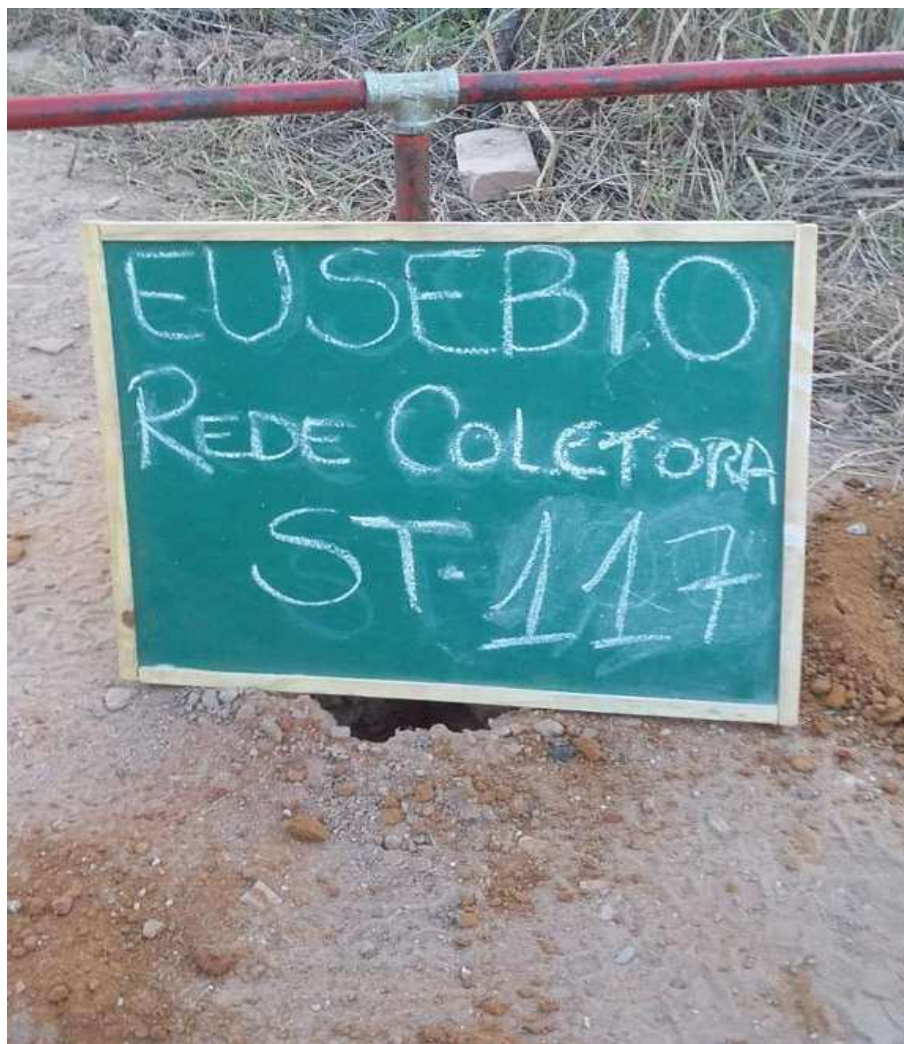 EUSEBIO
REDE COLETORA
ST-117